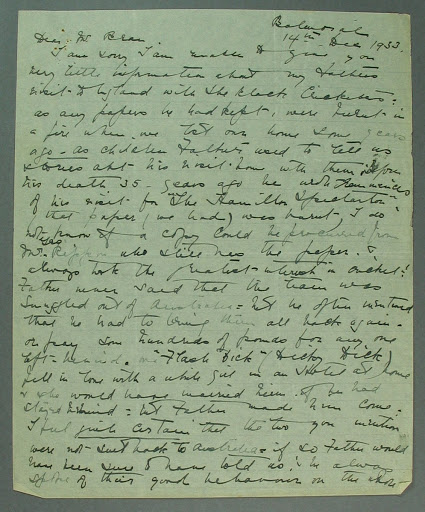 Balmoral
14th Dec 1933.
Dear Mr Bean.
I am sorry I am unable to give you
very little information about my Fathers
visit to England with the black Cricketers:
as any papers he had kept, were burnt in
a fire when we lost our home some years
ago. as children Father used to tell us
stories abt his visit home with them before
his death 35 years ago he wrote reminiscences
of his visit for "The Hamilton Spectator"
that paper (we had) was burnt, I do
not know if a copy could be procured from
Mr who still has the paper. &
always took the greatest interest in cricket!
Father never said that the team was
smuggled out of Australia = but he often mentioned
that he had to bring them all back again
or pay some hundreds of pounds for any one
left behind. one "Flash Dick" (Dicky Dick)
fell in love with a white girl in an Hotel at home
& she would have married him if he had
stayed behind = but Father made him come:
I feel quite certain that the two you mention
were not sent back to Australia = if so Father would
have been sure to have told us! he always
spoke of their good behaviour on the